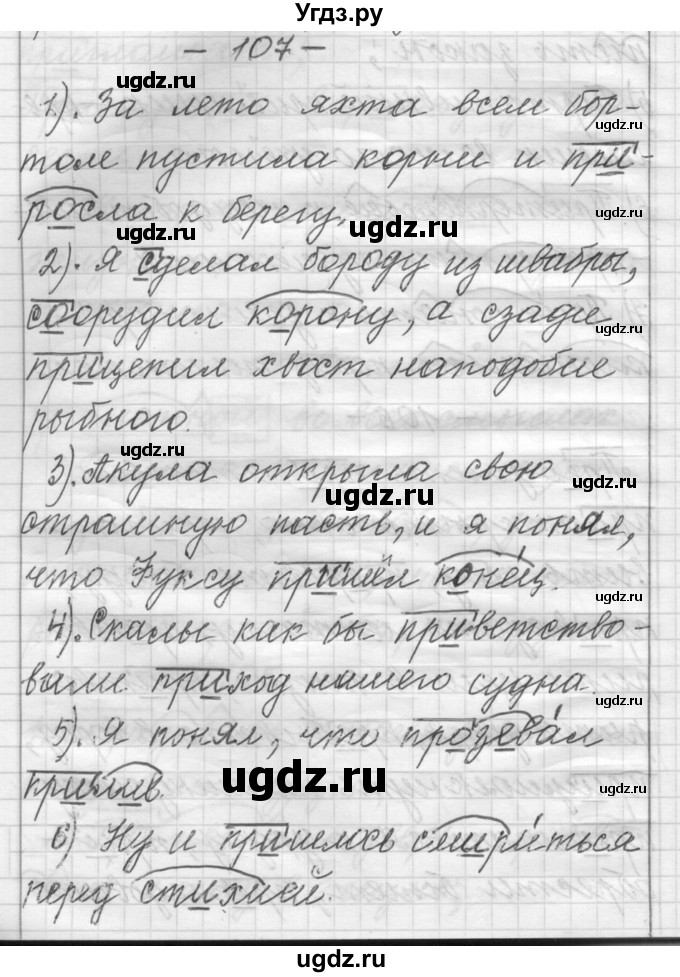 Угдз.ру
- 107 -
ugdz.ru
1). За лето яхта всем бор-
ugdz.ru
том пустила корни и при-
росла к берегу.
ugdz.ru
ugdz.ru
ugdz.ru
2). Я сделал бороду из швабры,
соорудил корону, а сзади
ugdz.ru
прицепил хвост наподобие
рыбного.
ugdz.ru
3). Акула открыла свою
ugdz.ru
ugdz.ru
страшную пасть, и я понял,
что Фуксу пришёл конец.
ugdz.ru
4). Скалы как бы приветство-
вали приход нашего судна.
ugdz.ru
5). Я понял, что прозевал
прилив.
ugdz.ru
ugdz.ru
6) Ну и пришлось смириться
перед стихией.
ugdz.ru
ugdz.ru